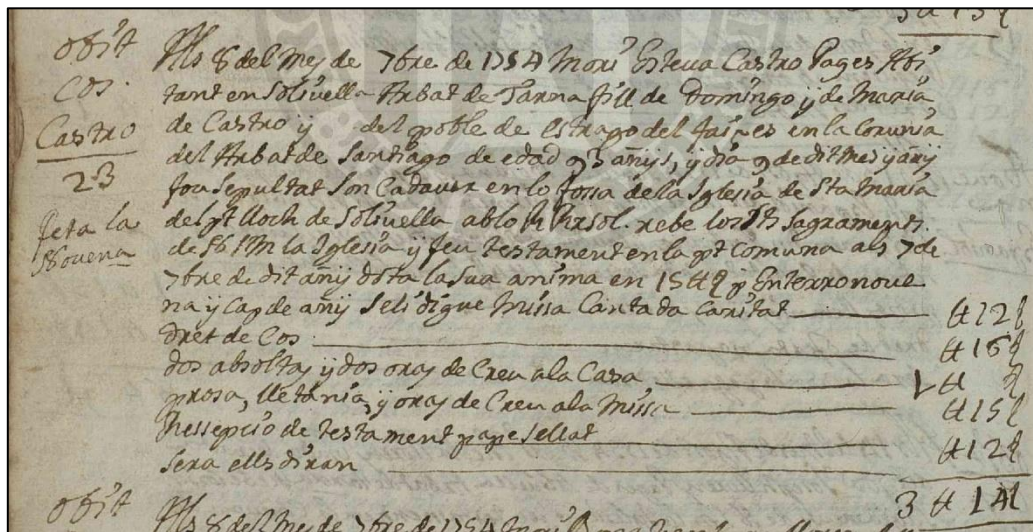 3 ₶ 15 ſ
obit
Cos.
Castro
23
feta la
Novena
Als 8 del Mes de 7bre de 1754 Morí Esteva Castro Pages Abi
tant en Solivella Arbat de Tarna fill de Domingo y de Maria
de Castro y del poble de del en la
del Arbat de Santiago de edad 95 añys, y dia 9 de dit mes y añy
fou sepultat son Cadaver en lo fossa de la Iglesia de Sta Maria
del pt lloch de Solivella ab lo rebe los Sts Sagraments
de la Iglesia y feu testament en la pt Comuna als 7 de
7bre de dit añy dota la sua anima en 15 ₶ p Enterro nove
na y Cap de añy se li digue Missa Cantada Caritat ₶ 12 ſ
Dret de Cos ₶ 16 ſ
dos absoltas y dos oras de Creu a la Casa
prosa, lletania, y oras de Creu a la Missa ₶ 15 ſ
Ressepcio de testament y papesellat ₶ 12 ſ
sera ells diran
3 ₶ 14 ſ
obit
Als 8 del Mes de 7bre de 1754 Morí